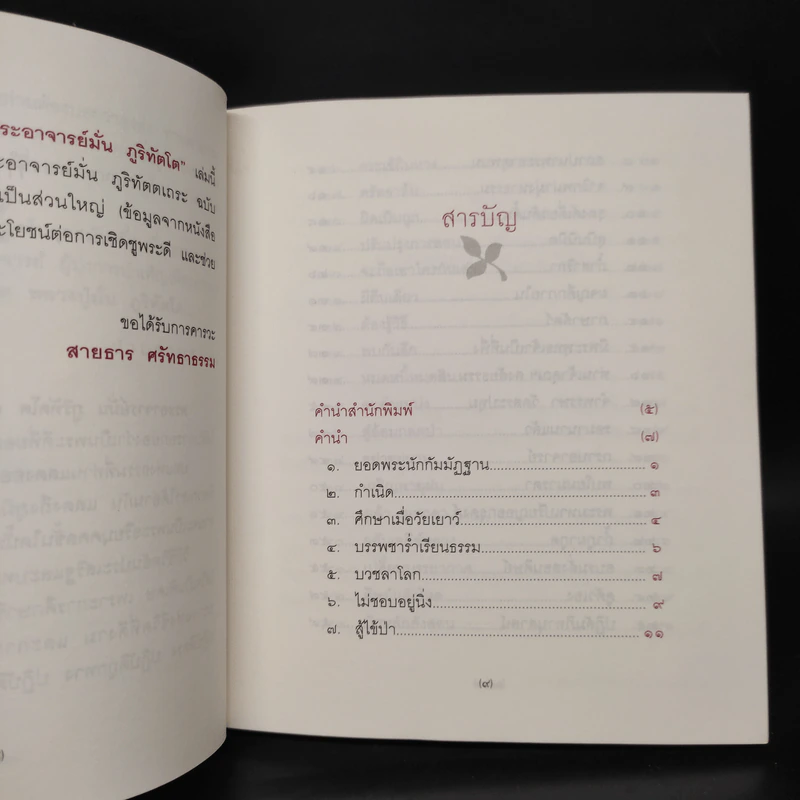 ระอาจารย์มั่น ภูริทัตโต" เล่มนี้
ะอาจารย์มั่น ภูริทัตตเถระ ฉบับ
เป็นส่วนใหญ่ (ข้อมูลจากหนังสือ
ะโยชน์ต่อการเชิดชูพระดี และช่วย
ขอได้รับการคารวะ
สายธาร ศรัทธาธรรม
สารบัญ
คำนำสำนักพิมพ์ (๕)
คำนำ (๗)
๑. ยอดพระนักกัมมัฏฐาน ๑
๒. กำเนิด ๓
๓. ศึกษาเมื่อวัยเยาว์ ๔
๔. บรรพชาร่ำเรียนธรรม ๖
๕. บวชลาโลก ๗
๖. ไม่ชอบอยู่นิ่ง ๙
๗. สู้ไข้ป่า ๑๑
(๙)